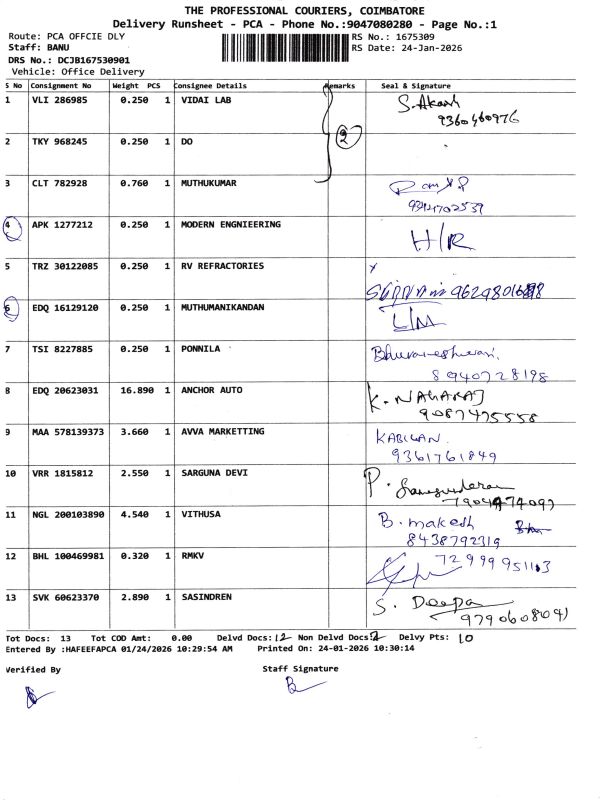 THE PROFESSIONAL COURIERS, COIMBATORE
Delivery Runsheet - PCA - Phone No.:9047080280 - Page No.:1
Route: PCA OFFCIE DLY RS No.: 1675309
Staff: BANU RS Date: 24-Jan-2026
DRS No.: DCJB167530901
Vehicle: Office Delivery
S No Consignment No Weight PCS Consignee Details Remarks Seal & Signature
1 VLI 286985 0.250 1 VIDAI LAB S. Akash
9360460976
2 TKY 968245 0.250 1 DO 2
3 CLT 782928 0.760 1 MUTHUKUMAR
4 APK 1277212 0.250 1 MODERN ENGNIEERING H/R
5 TRZ 30122085 0.250 1 RV REFRACTORIES x
6 EDQ 16129120 0.250 1 MUTHUMANIKANDAN
7 TSI 8227885 0.250 1 PONNILA Bhuvaneshwari.
8940728198
8 EDQ 20623031 16.890 1 ANCHOR AUTO K. NAGARAJ
9087475558
9 MAA 578139373 3.660 1 AVVA MARKETTING KABILAN.
9361761849
10 VRR 1815812 2.550 1 SARGUNA DEVI P.
11 NGL 200103890 4.540 1 VITHUSA B. makesh
8438792319
12 BHL 100469981 0.320 1 RMKV
13 SVK 60623370 2.890 1 SASINDREN S. Deepa
9790608041
Tot Docs: 13 Tot COD Amt: 0.00 Delvd Docs: 12 Non Delvd Docs: 2 Delvy Pts: 10
Entered By :HAFEEFAPCA 01/24/2026 10:29:54 AM Printed On: 24-01-2026 10:30:14
Verified By Staff Signature
B